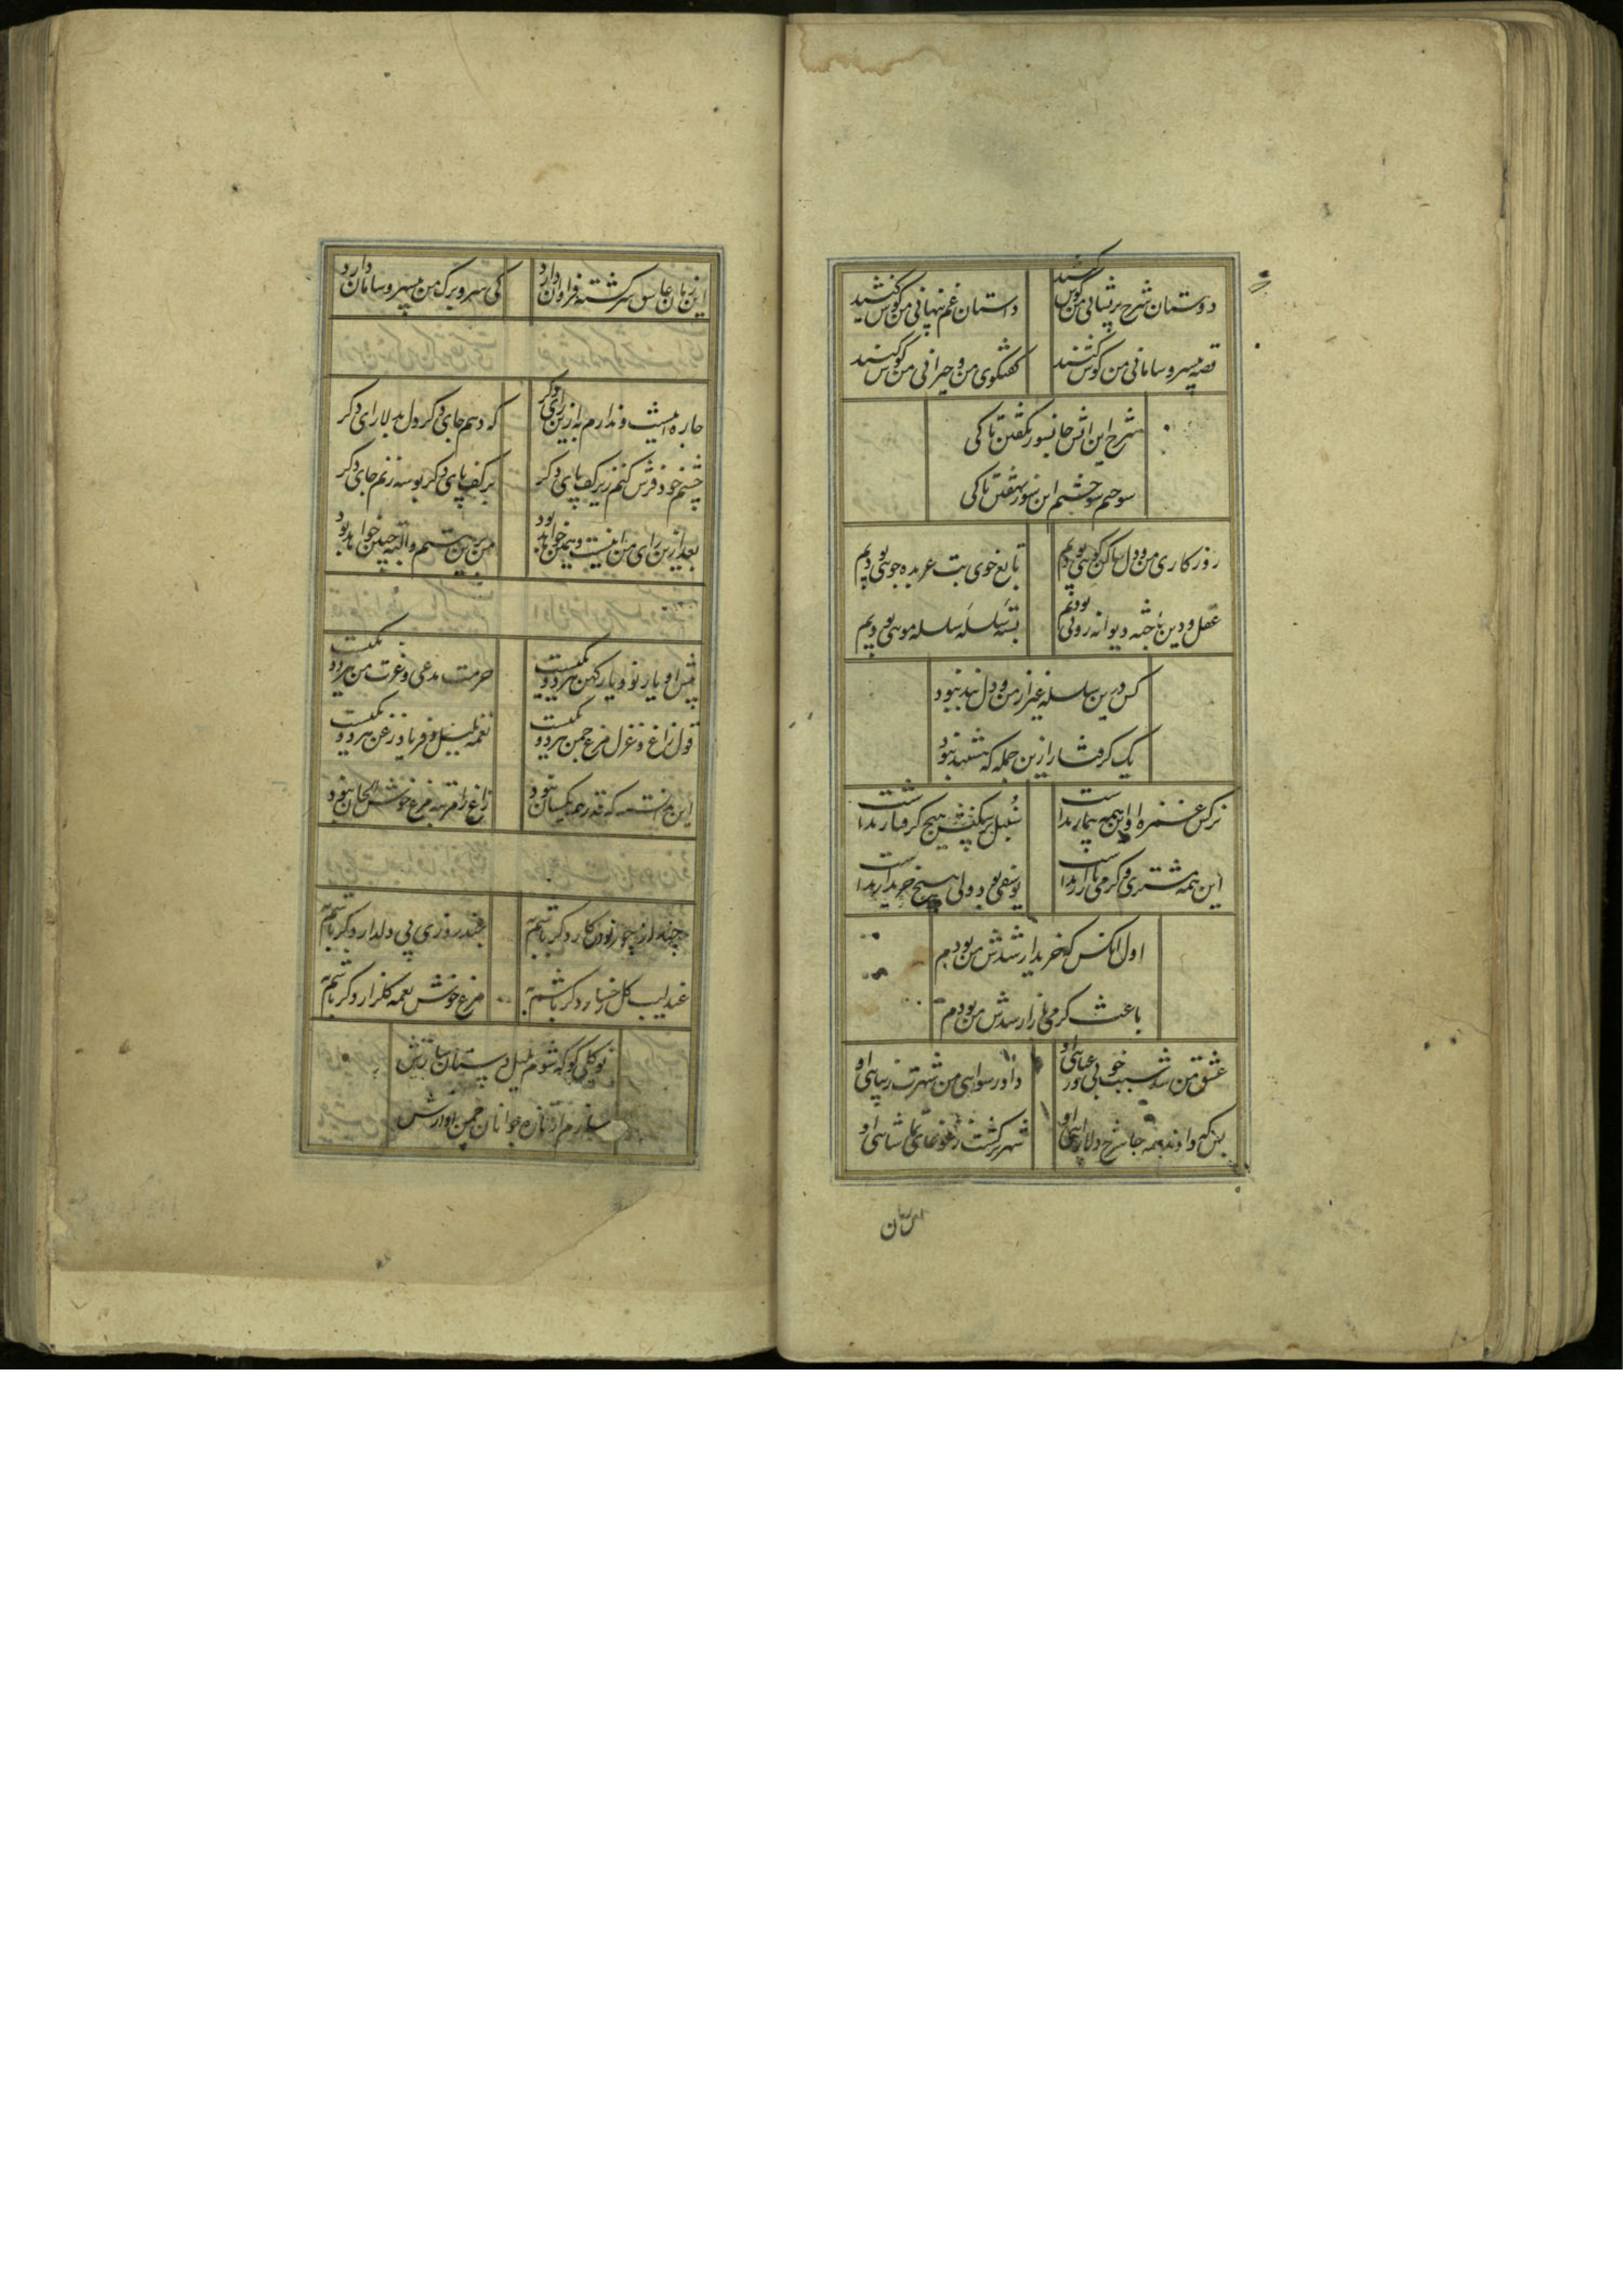 دوستان شرح پریشانی من گوش کنید داستان غم پنهانی من گوش کنید
قصه بیسر و سامانی من گوش کنید گفتگوی من و حیرانی من گوش کنید
شرح این اتش جانسوز نگفتن تا کی
سوختم سوختم این سوز نهفتن تا کی
روزکاری من و دل ساکن کویی بودیم تابع خوی بت عربده جویی بودیم
عقل و دین باخته دیوانه رویی بودیم بسته سلسله سلسله مویی بودیم
کس درین سلسله غیر از من و دل بند نبود
یک کرفتار ازین جمله که هستند نبود
نرکس غمزه او اینهمه بیمار نداشت سنبل پرشکنش هیچ کرفتار نداشت
این همه مشتری و کرمی بازار نداشت یوسفی بود ولی هیچ خریدار نداشت
اول انکس که خریدار شدش من بودم
باعث کرمی بازار شدش من بودم
عشق من شد سبب خوبی و رعنایی او داد رسوایی من شهرت زیبایی او
بس که دادم همه جا شرح دلارایی او شهر پر کشت ز غوغای تماشایی او
این زمان
این زمان عاشق سرکشته فراوان دارد کی سر و برک من بیسر و سامان دارد
چاره اینست و ندارم به ازین رای دکر که دهم جای دکر دل بدلارای دکر
چشم خود فرش کنم زیر کف پای دکر بر کف پای دکر بوسه زنم جای دکر
بعد ازین رای من اینست و همین خواهد بود من برین هستم و البته چنین خواهد بود
پیش او یار نو و یار کهن هر دو یکیست حرمت مدعی و عزت من هر دو یکیست
قول زاغ و غزل مرغ چمن هر دو یکیست نغمه بلبل و فریاد زغن هر دو یکیست
این ندانسته که قدر همه یکسان نبود زاغ را مرتبه مرغ خوش الحان نبود
چون چنین است پی کار دکر باشم به چند روزی پی دلدار دکر باشم به
عندلیب کل رخسار دکر باشم به مرغ خوش نغمه کلزار دکر باشم به
نوکلی کو که شوم بلبل دستان سازش
سازم از تازه جوانان چمن ممتازش